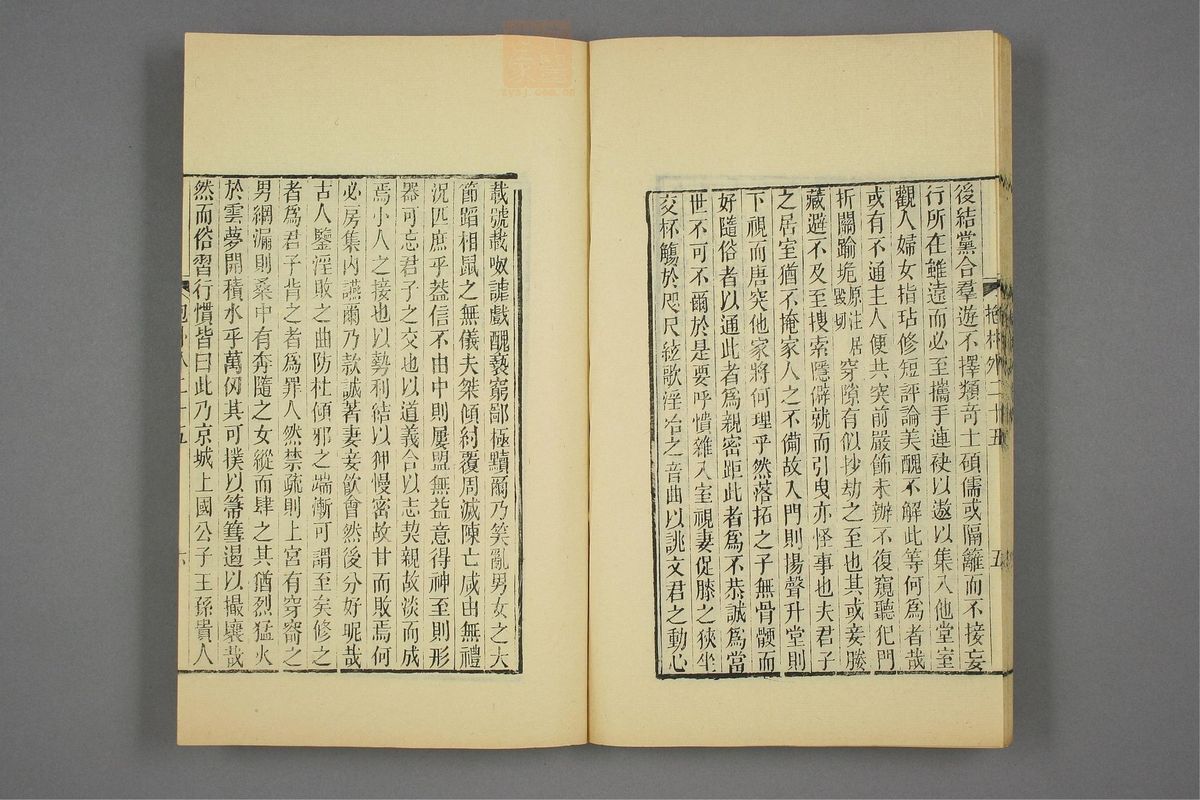 後結黨合羣遊不擇類奇士碩儒或隔籬而不接妄
行所在雖遠而必至攜手連袂以遨以集入他堂室
觀人婦女指玷修短評論美醜不解此等何為者哉
或有不通主人便共突前嚴飾未辦不復窺聽犯門
折關踰垝原注居毀切穿隙有似抄劫之至也其或妾媵
藏避不及至搜索隱僻就而引曳亦怪事也夫君子
之居室猶不掩家人之不備故入門則揚聲升堂則
下視而唐突他家將何理乎然落拓之子無骨骾而
好隨俗者以通此者為親密距此者為不恭誠為當
世不可不爾於是要呼憒雜入室視妻促膝之狹坐
交杯觴於咫尺絃歌淫冶之音曲以誂文君之動心
抱朴外二十五
五
載號載呶謔戲醜褻窮鄙極黷爾乃笑亂男女之大
節蹈相鼠之無儀夫桀傾紂覆周滅陳亡咸由無禮
況匹庶乎葢信不由中則屢盟無益意得神至則形
器可忘君子之交也以道義合以志契親故淡而成
焉小人之接也以勢利結以狎慢密故甘而敗焉何
必房集內讌爾乃款誠著妻妾飲會然後分好昵哉
古人鑒淫敗之曲防杜傾邪之端漸可謂至矣修之
者為君子背之者為罪人然禁疏則上宮有穿窬之
男網漏則桑中有奔隨之女縱而肆之其猶烈猛火
於雲夢開積水乎萬仞其可撲以箒篲遏以撮壤哉
然而俗習行慣皆曰此乃京城上國公子王孫貴人
六